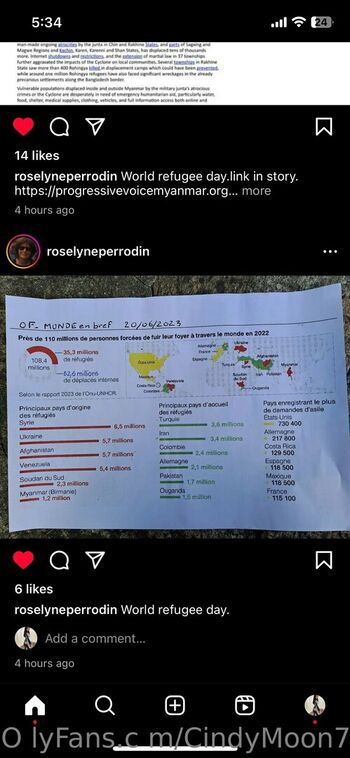 5:34
24
man-made ongoing atrocities by the junta in Chin and Rakhine States, and parts of Sagaing and
Magwe Regions and Kachin, Karen, Karenni and Shan States, has displaced tens of thousands
more. Internet shutdowns and restrictions, and the extension of martial law in 37 townships
further aggravated the impacts of the Cyclone on local communities. Several townships in Rakhine
State saw more than 400 Rohingya killed in displacement camps which could have been prevented,
while around one million Rohingya refugees have also faced significant wreckages in the already
precarious settlements along the Bangladesh border.
Vulnerable populations displaced inside and outside Myanmar by the military junta's atrocious
crimes or the Cyclone are desperately in need of emergency humanitarian aid, particularly water,
food, shelter, medical supplies, clothing, vehicles, and full information access both online and
14 likes
roselyneperrodin World refugee day.link in story.
https://progressivevoicemyanmar.org... more
4 hours ago
roselyneperrodin
OF- MONDE en bref 20/06/2023
Près de 110 millions de personnes forcées de fuir leur foyer à travers le monde en 2022
108,4
millions
35,3 millions
de réfugiés
62,6 millions
de déplacés internes
Selon le rapport 2023 de l'Onu-UNHCR.
États-Unis
Mexique
Costa Rica
Colombie
Venezuela
Allemagne
France
Espagne
Ukraine
Turquie
Syrie
Afghanistan
Iran
Pakistan
Myanmar
Soudan
du Sud
Ouganda
Principaux pays d'origine
des réfugiés
Syrie
6,5 millions
Ukraine
5,7 millions
Afghanistan
5,7 millions
Venezuela
5,4 millions
Soudan du Sud
2,3 millions
Myanmar (Birmanie)
1,2 million
Principaux pays d'accueil
des réfugiés
Turquie
3,6 millions
Iran
3,4 millions
Colombie
2,4 millions
Allemagne
2,1 millions
Pakistan
1,7 million
Ouganda
1,5 million
Pays enregistrant le plus
de demandes d'asile
États-Unis
730 400
Allemagne
217 800
Costa Rica
129 500
Espagne
118 500
Mexique
118 500
France
115 100
6 likes
roselyneperrodin World refugee day.
Add a comment...
4 hours ago
O lyFans.c m/CindyMoon7